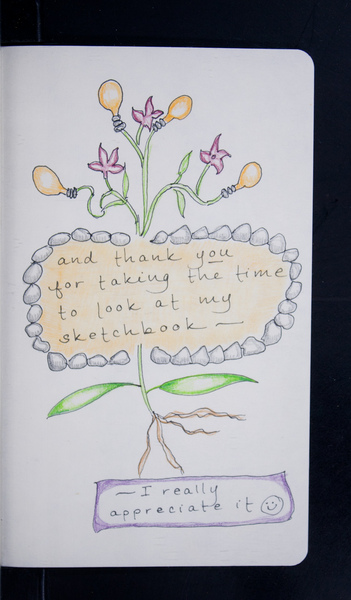 and thank you
for taking the time
to look at my
sketchbook —
— I really
appreciate it ☺